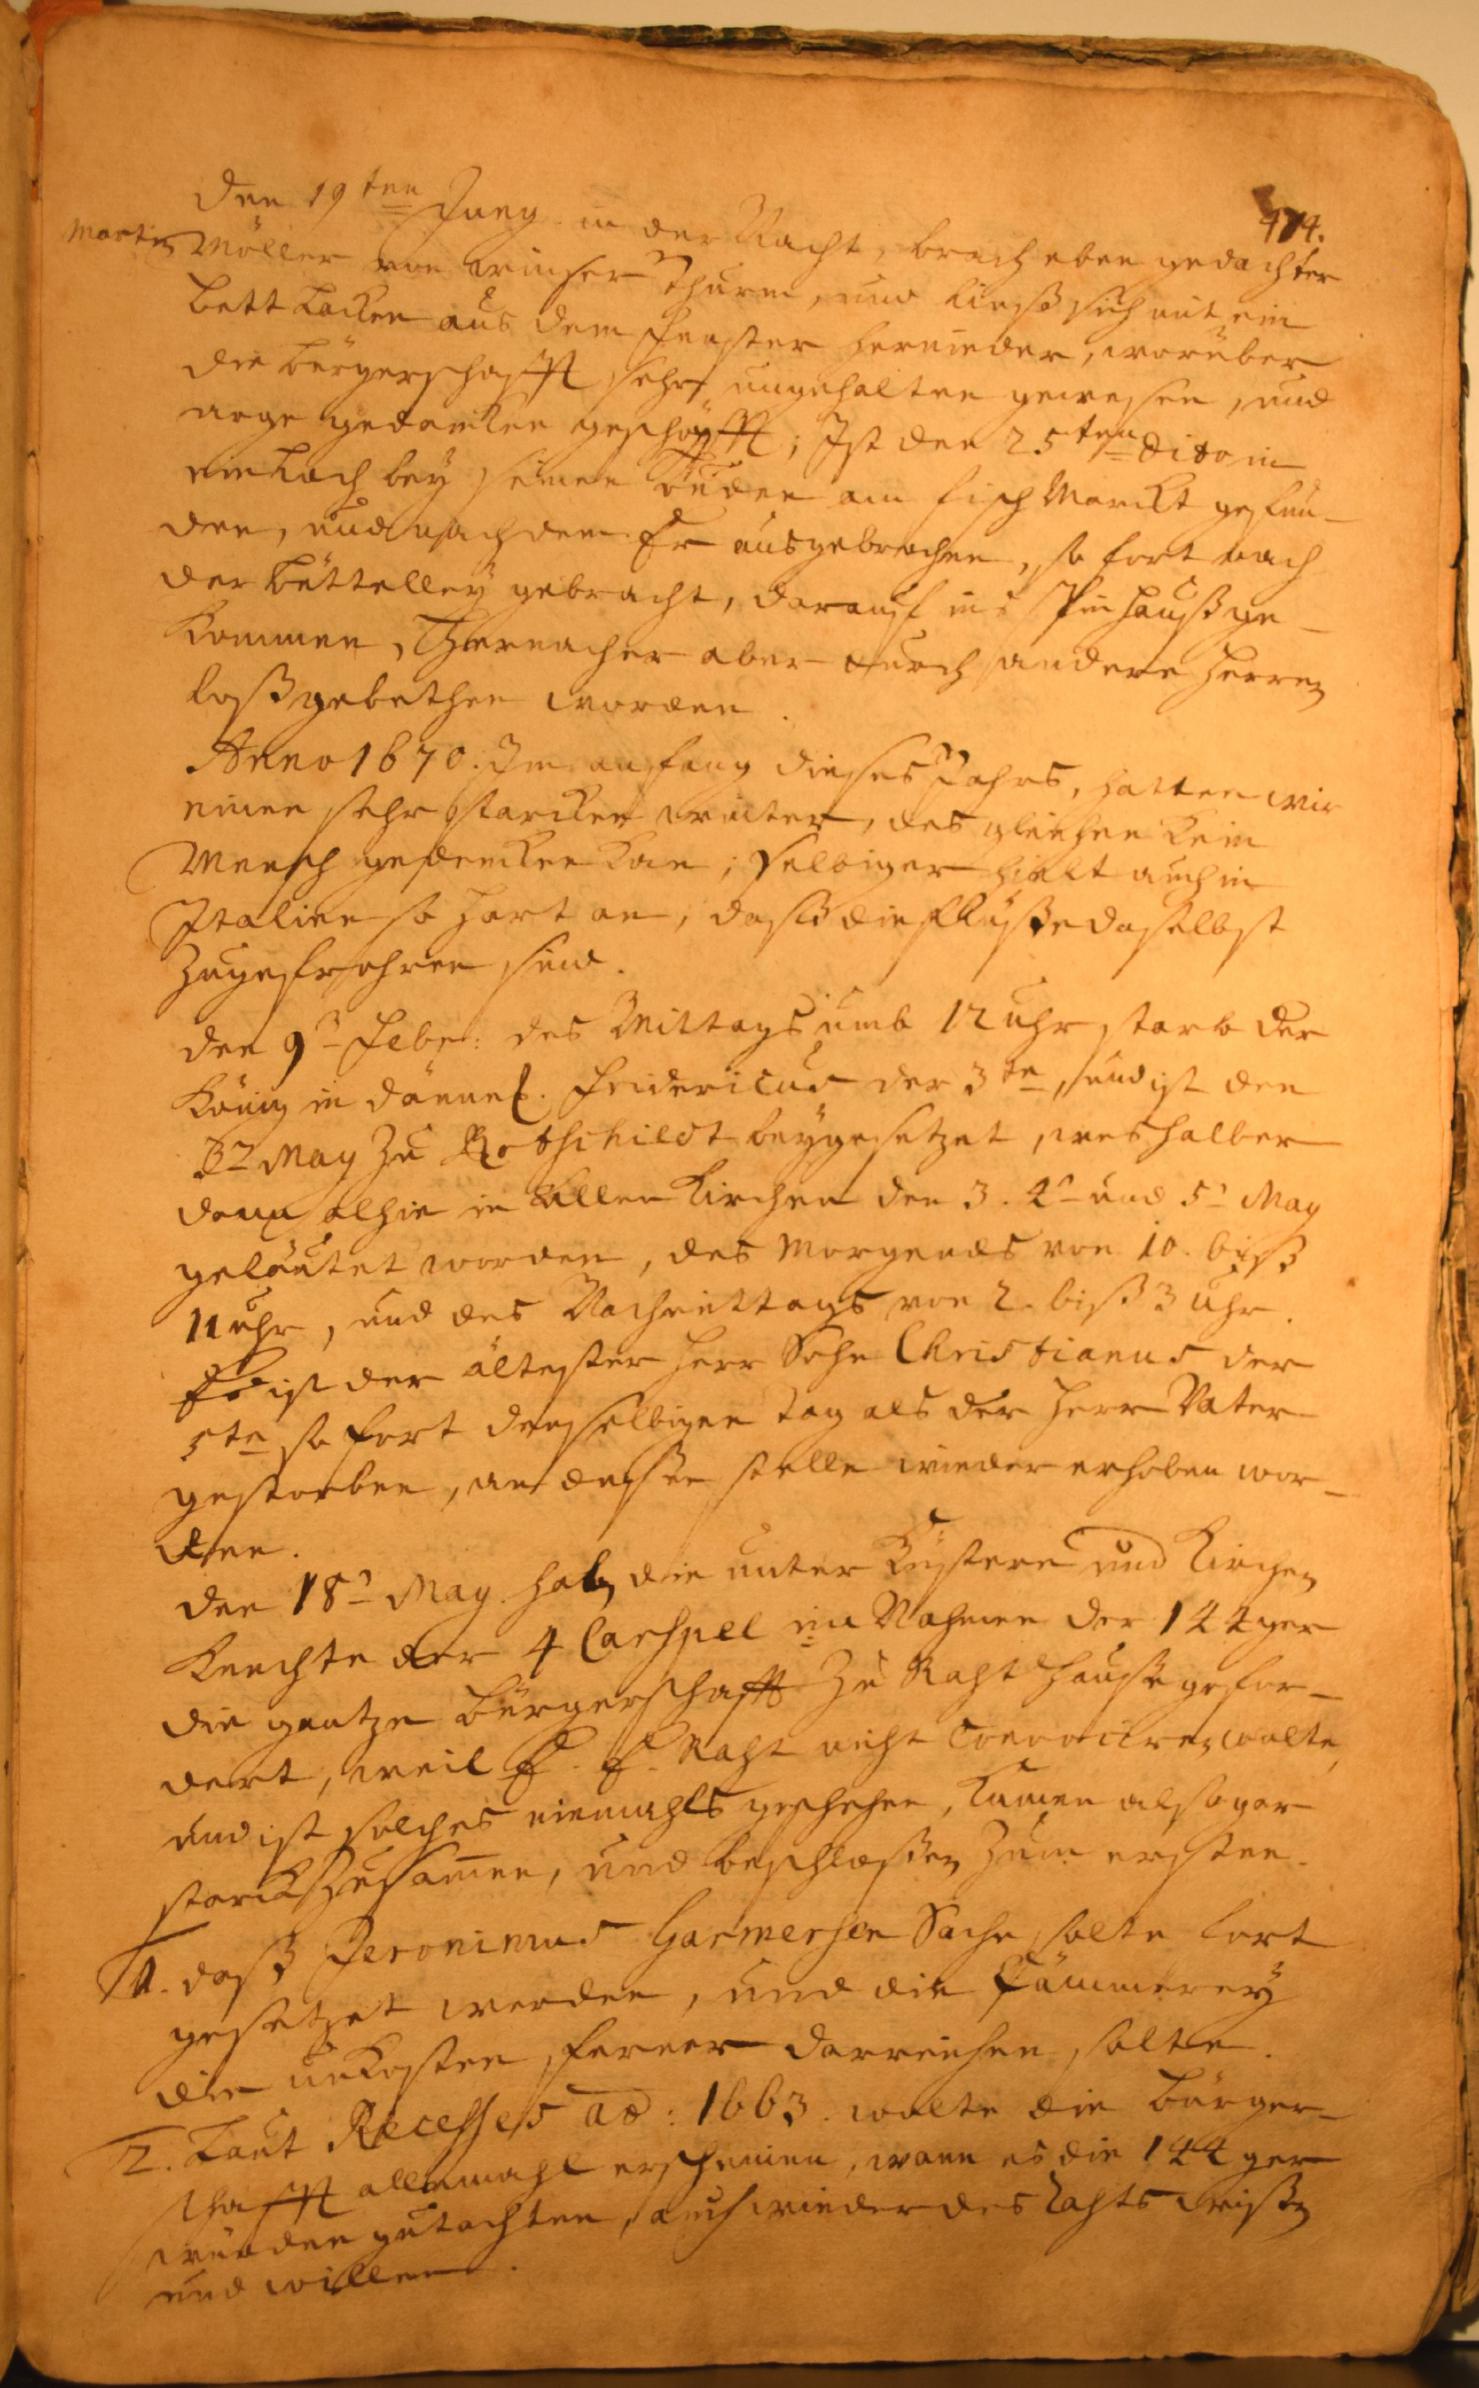 474.
Den 19ten Juny in der Nacht, brach eben gedachter
Martin Möller von winser Thurm, und ließ sich mit ein
bett lacken aus dem fenster hernieder, worüber
die bürgerschafft sehr ungehalten gewesen, und
arge gedancken geschöpfft; Ist den 25ten dito in
ein loch bey seinen buden am fisch Marckt gefun-
den, und nach dem Er ausgebrochen, so fort nach
der büttelley gebracht, darauf ins Spinhauß ge-
kommen, Hernacher aber durch andere Herren
loßgebethen worden.
Anno 1670. Im anfang dieses Jahrs, hatten wir
einen sehr starcken winter, des gleichen kein
Mensch gedencken kan; selbiger hielt auch in
Italien so hart an, daß die flüße daselbst
zugefrohren sind.
den 9 Febr: des Mittags umb 12 uhr starb der
König in dännem. Fridericus der 3te, und ist den
May zu Rothschildt beygesetzet, weshalber
dann alhie in allen Kirchen den 3. 4 und 5 May
geläutet worden, des Morgends von 10. biß
11 uhr, und des Nachmittags von 2. biß 3 uhr.
Es ist der ältester Herr Sohn Christianus der
5te so fort denselbigen tag als der Herr Vater
gestorben, an deßen stelle wieder erhoben wor-
den.
den 18 May. haben die unter Küstere und Kirchen
Knechte der 4 Carspel im Nahmen der 144ger
die gantze bürgerschafft zu Raht Hauße gefor-
dert, weil E. E. Raht nicht convociren wolte,
und ist solches niemahls geschehen, kamen also gar
starck zusammen, und beschloßen zum ersten.
1. daß Jeronimus Garmersen Sache solte fort
gesetzet werden, und die Cämmerey
die unkosten ferner darreichen solte.
2. Laut Recesses ao: 1663. wolte die bürger-
schafft allemahl erscheinen, wann es die 144ger
würden gutachten, auch wieder des Rahts wißen
und willen.